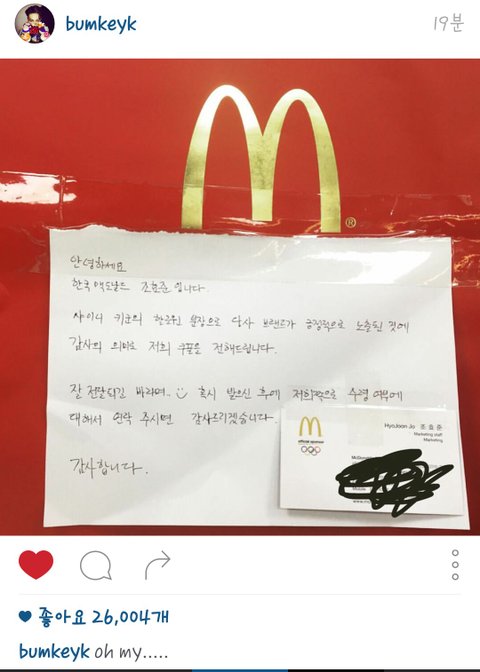 bumkeyk
19분
®
안녕하세요
한국 맥도날드 조효준 입니다.
샤이니 키군의 할로윈 분장으로 당사 브랜드가 긍정적으로 노출된 것에
감사의 의미로 저희 쿠폰을 전해드립니다.
잘 전달되길 바라며.. 혹시 받으신 후에 저희쪽으로 수령 여부에
대해서 연락 주시면 감사드리겠습니다.
감사합니다.
HyoJoon Jo 조효준
Marketing staff
Marketing
official sponsor
McDonald
Mobile
www.m
좋아요 26,004개
bumkeyk oh my.....